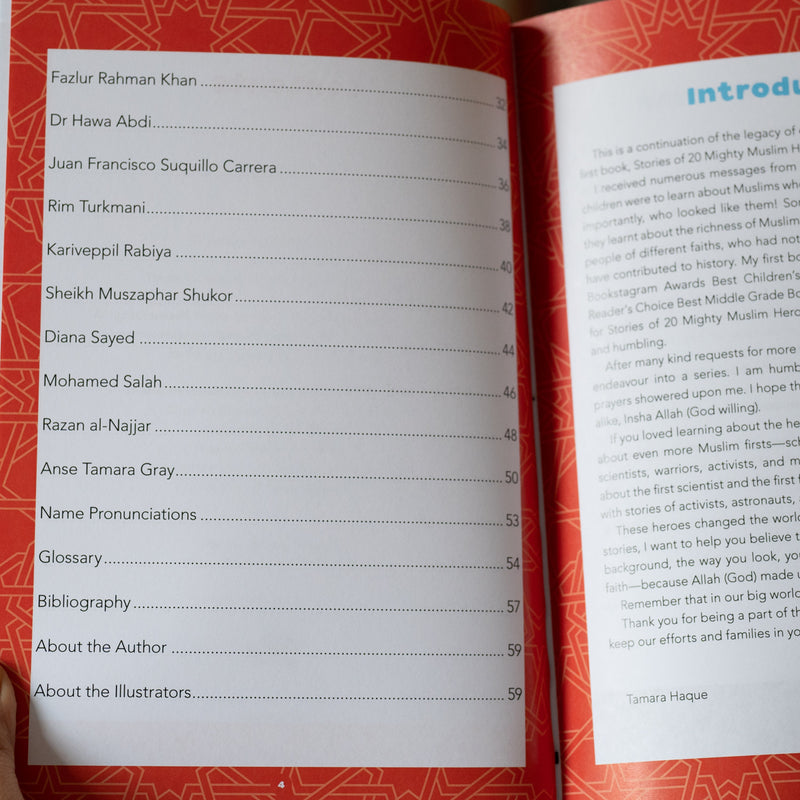 Fazlur Rahman Khan ........ 32
Dr Hawa Abdi ........ 34
Juan Francisco Suquillo Carrera ........ 36
Rim Turkmani ........ 38
Kariveppil Rabiya ........ 40
Sheikh Muszaphar Shukor ........ 42
Diana Sayed ........ 44
Mohamed Salah ........ 46
Razan al-Najjar ........ 48
Anse Tamara Gray ........ 50
Name Pronunciations ........ 53
Glossary ........ 54
Bibliography ........ 57
About the Author ........ 59
About the Illustrators ........ 59
4
Introdu
This is a continuation of the legacy of
first book, Stories of 20 Mighty Muslim H
I received numerous messages from
children were to learn about Muslims wh
importantly, who looked like them! So
they learnt about the richness of Muslim
people of different faiths, who had not
have contributed to history. My first bo
Bookstagram Awards Best Children's
Reader's Choice Best Middle Grade Bo
for Stories of 20 Mighty Muslim Hero
and humbling.
After many kind requests for more
endeavour into a series. I am humb
prayers showered upon me. I hope th
alike, Insha Allah (God willing).
If you loved learning about the he
about even more Muslim firsts—sch
scientists, warriors, activists, and m
about the first scientist and the first f
with stories of activists, astronauts,
These heroes changed the world
stories, I want to help you believe t
background, the way you look, you
faith—because Allah (God) made u
Remember that in our big world
Thank you for being a part of th
keep our efforts and families in yo
Tamara Haque